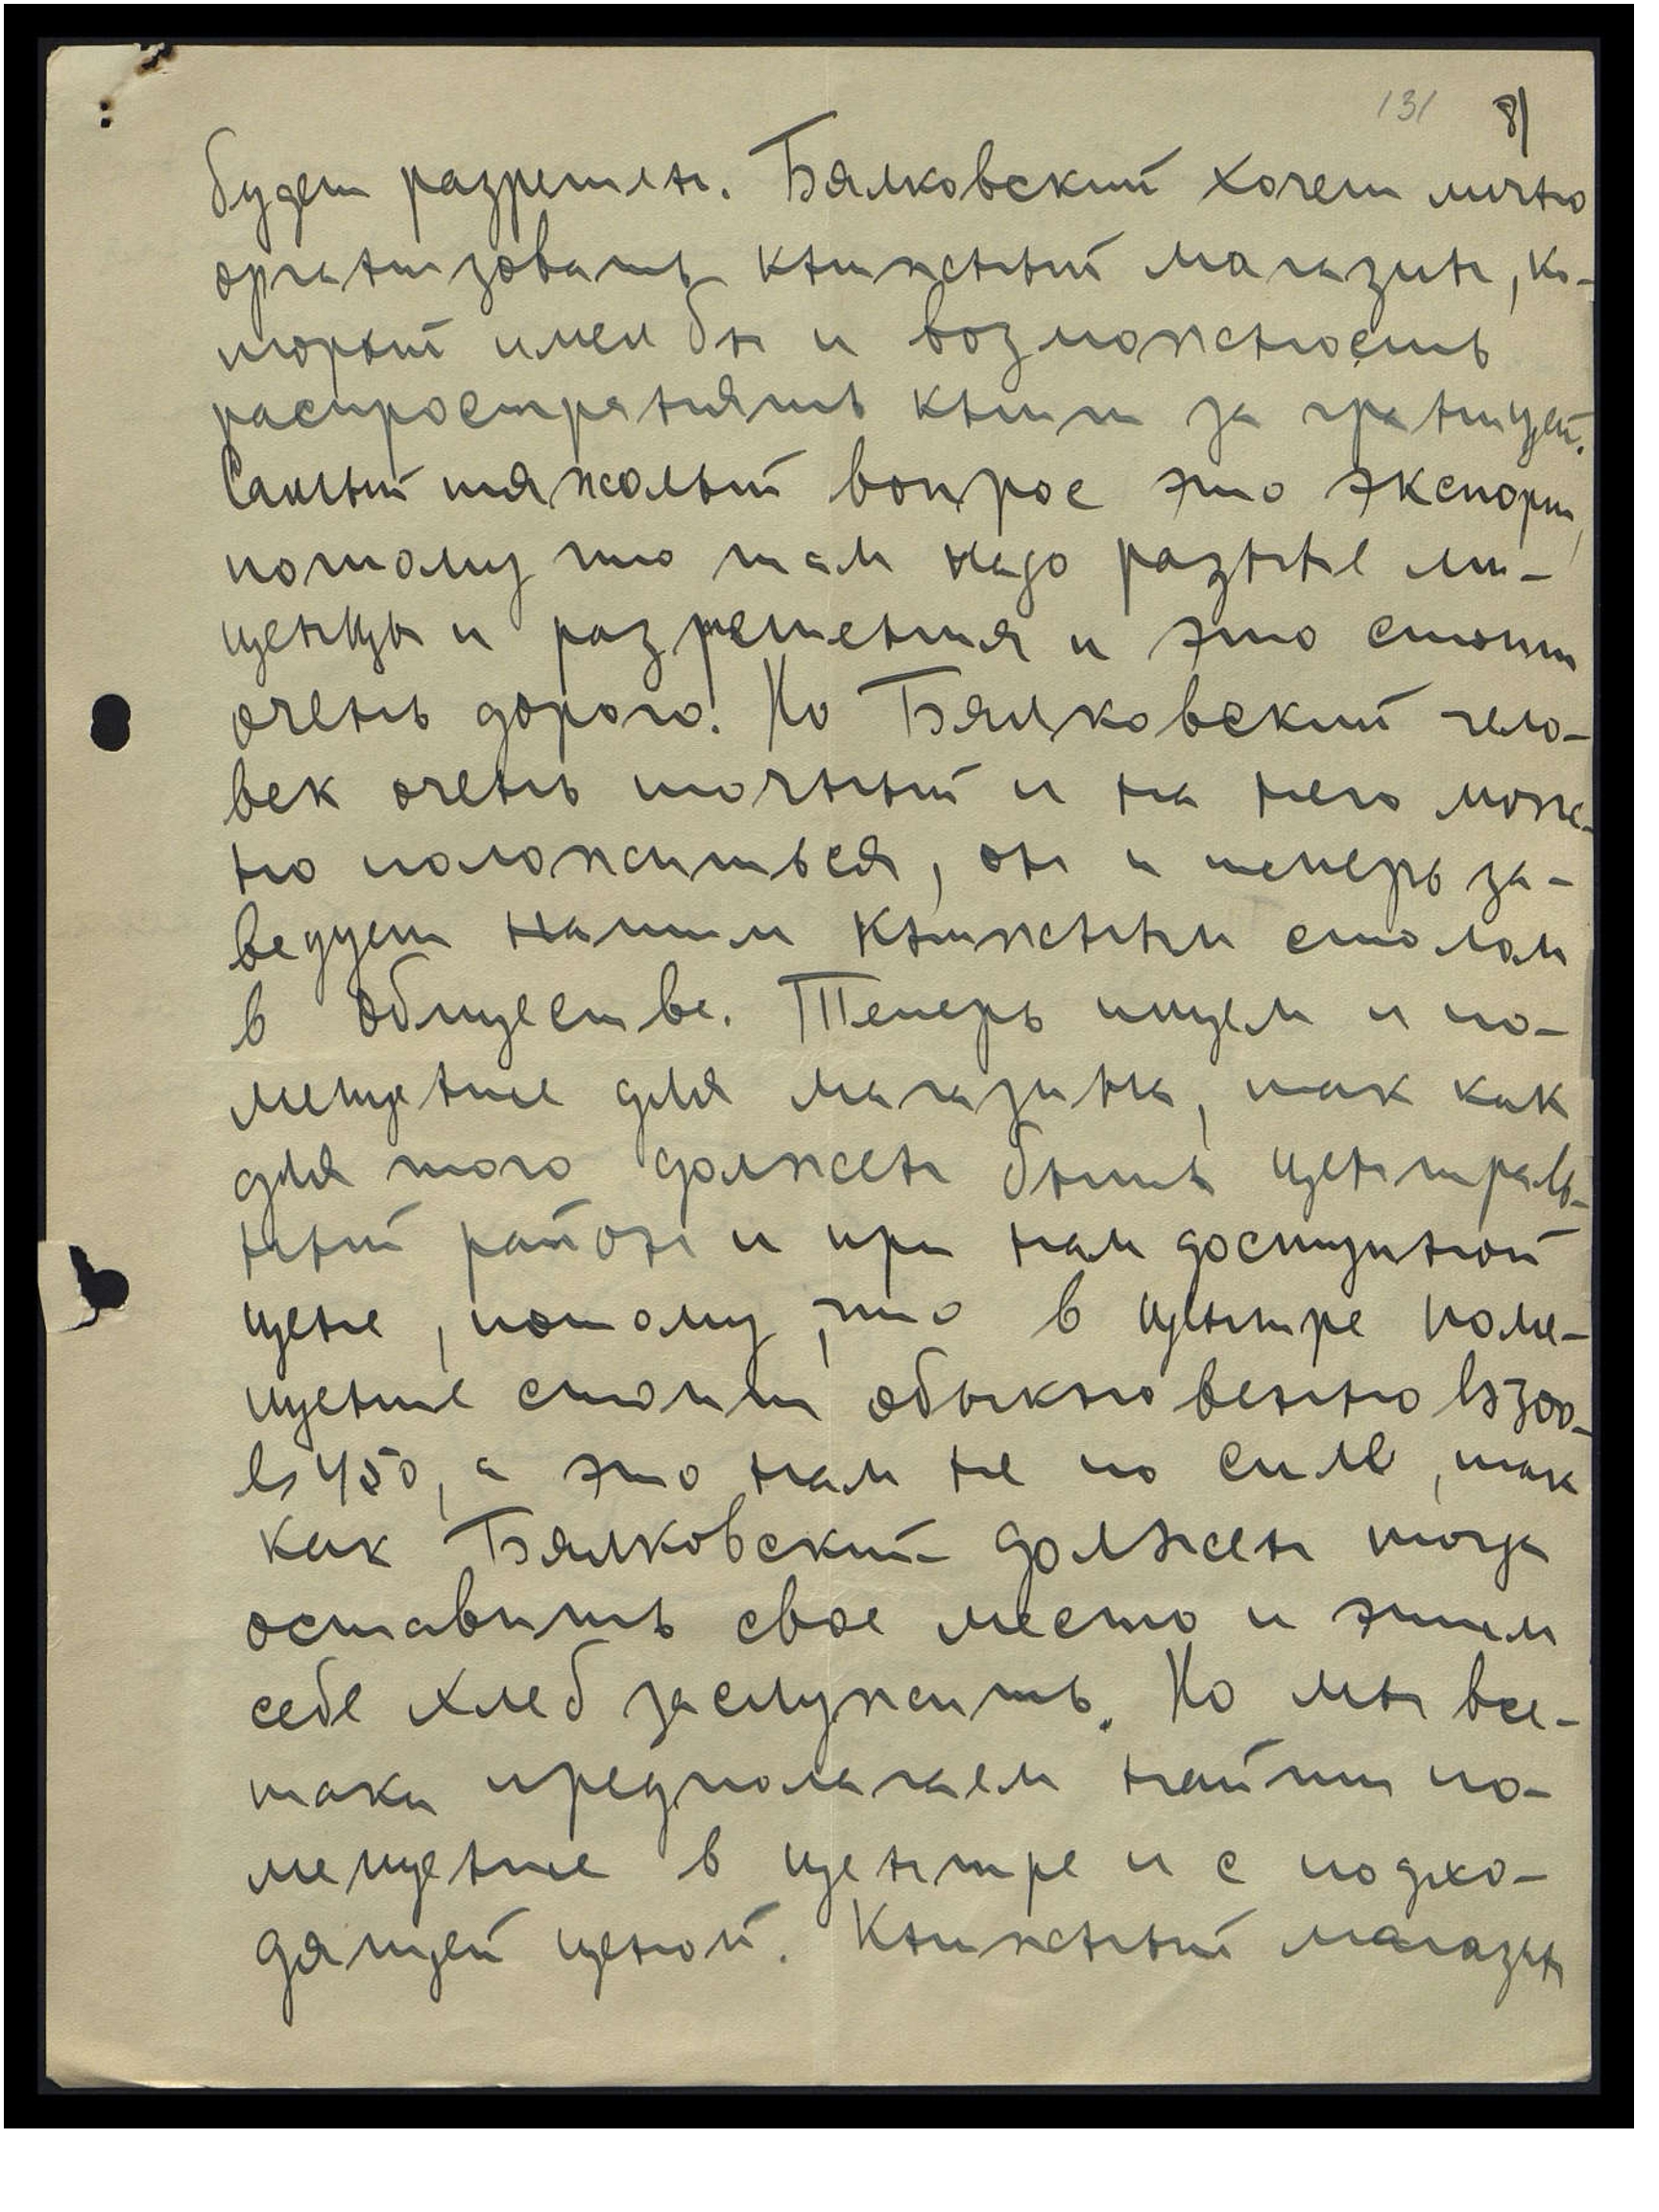 131 8)
будет разрешен. Бялковский хочет лично
организовать книжный магазин, ко-
торый имел бы и возможность
распространять книги за границей.
Самый тяжолый вопрос это экспорт,
потому что там надо разные ли-
цензы и разрешения и это стоит
очень дорого. Но Бялковский чело-
век очень точный и на него мож-
но положиться, он и теперь за-
ведует нашим книжным столом
в обществе. Теперь ищем и по-
мещение для магазина, так как
для того должен быть централь-
ный район и при нам доступной
цене, потому, что в центре поме-
щение стоит обыкновенно Ls 300-
Ls 450, а это нам не по силе, так
как Бялковский должен тогда
оставить свое место и этим
себе хлеб заслужить. Но мы все-
таки предполагаем найти по-
мещение в центре и с подхо-
дящей ценой. Книжный магазин